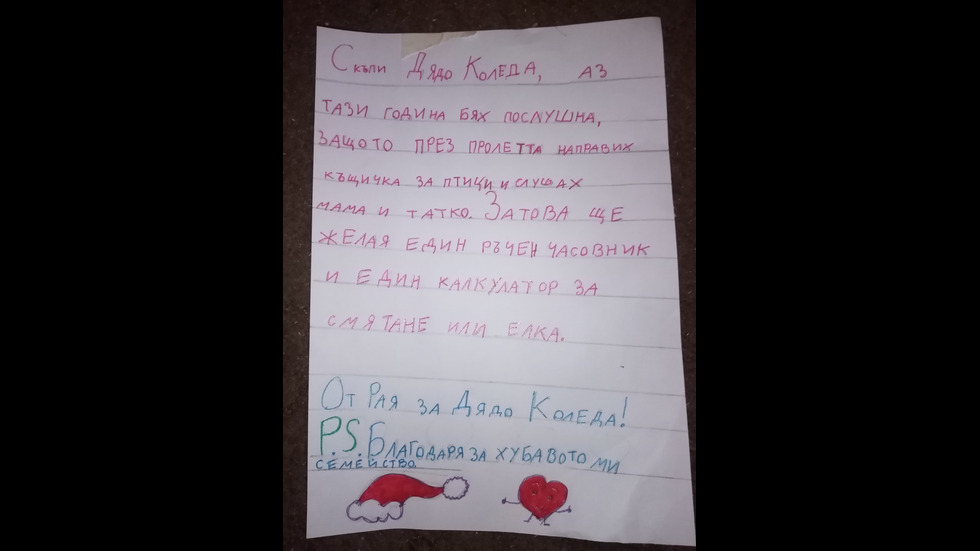 Скъпи Дядо Коледа, аз
тази година бях послушна,
защото през пролетта направих
къщичка за птици и слушах
мама и татко. Затова ще
желая един ръчен часовник
и един калкулатор за
смятане или елка.
От Рая за Дядо Коледа!
P.S. Благодаря за хубавото ми
семейство